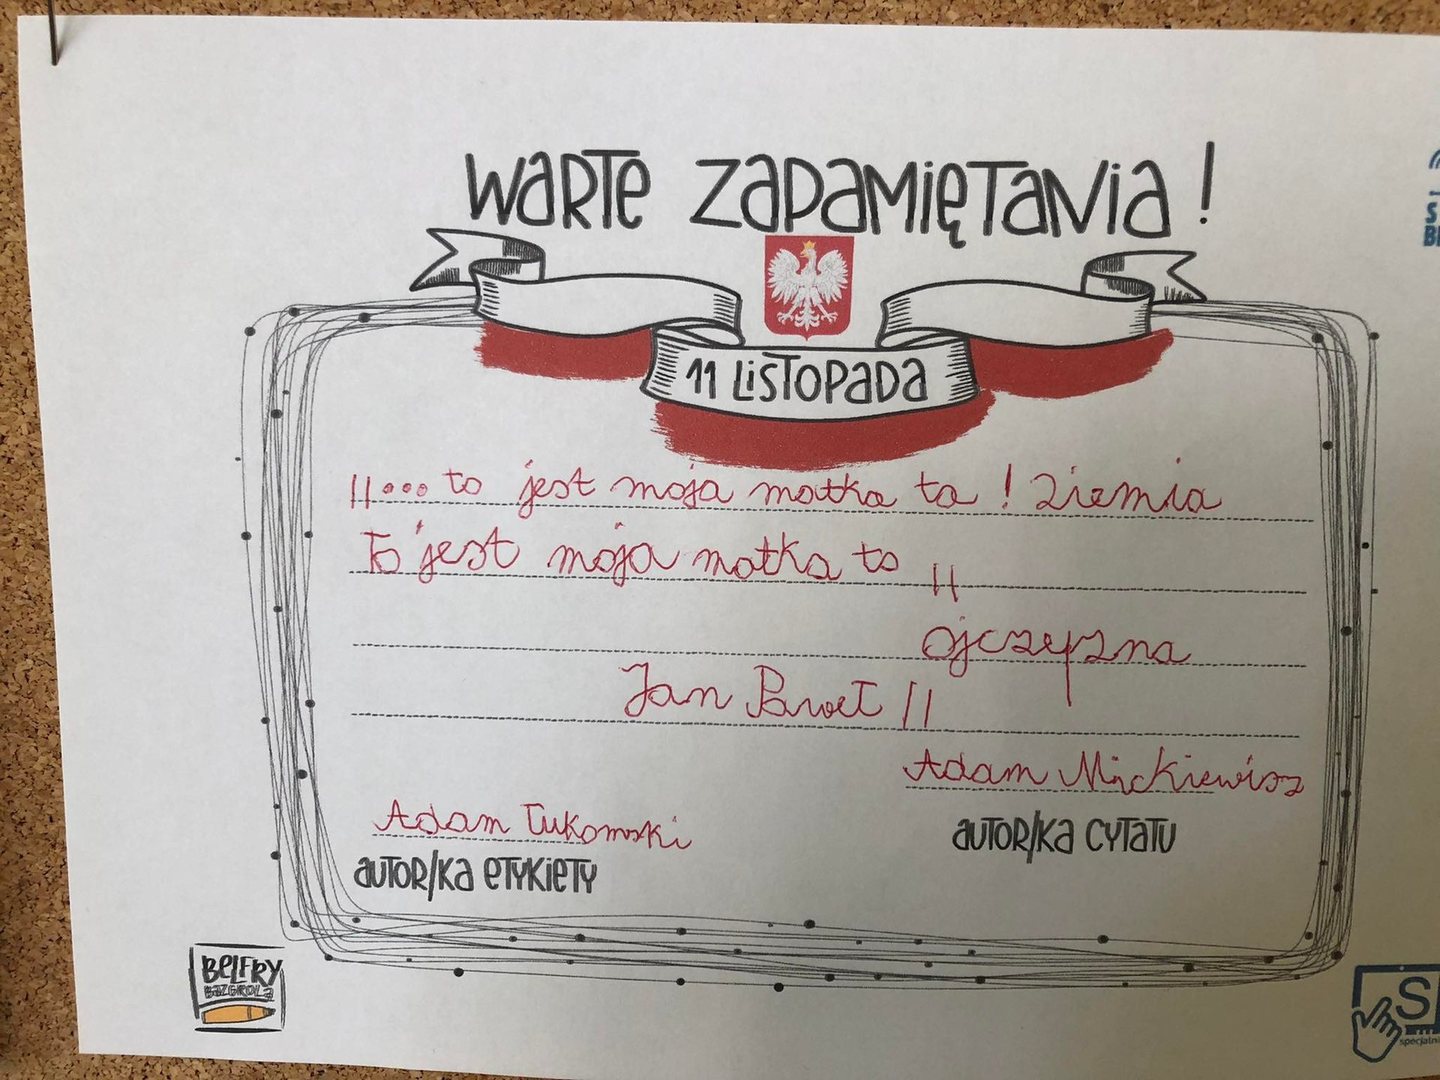 WARTE ZAPAMIĘTANIA!
11 LISTOPADA
"... to jest moja matka ta! Ziemia
To jest moja matka to "
ojczyzna
Jan Paweł II
Adam Mickiewisz
Adam Łukomski
AUTOR/KA CYTATU
AUTOR/KA ETYKIETY
BELFRY
BAZGROLĄ
S